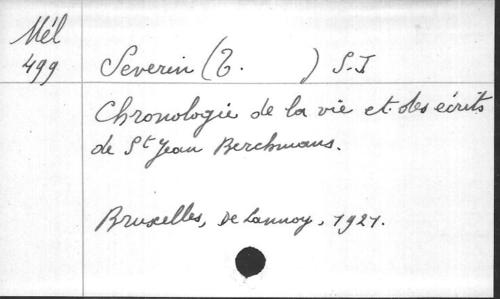 Mél
499
Severin (T. ) S.J
Chronologie de la vie et des écrits
de St Jean Berchmans.
Bruxelles, De Lannoy, 1921.